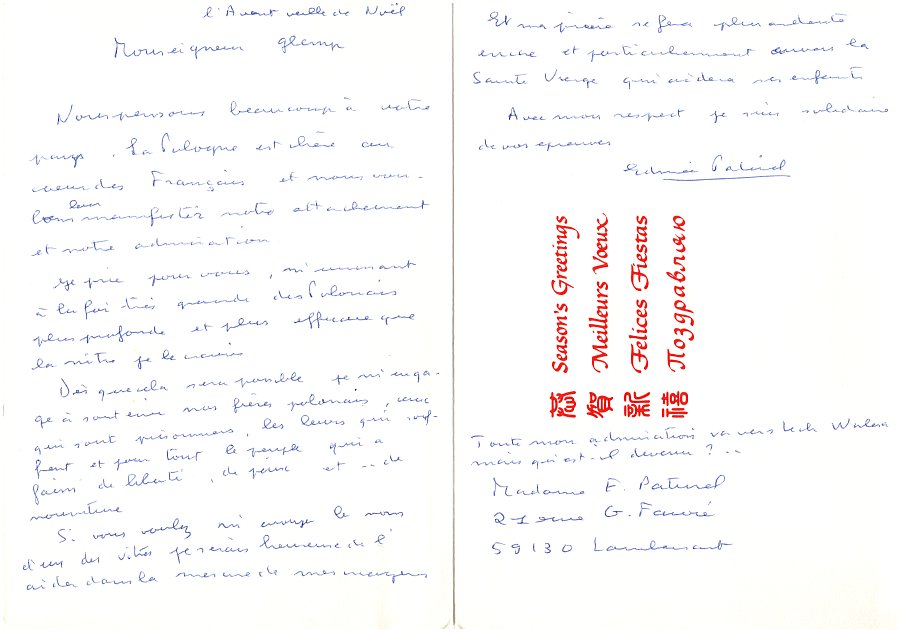 l'Avant veille de Noël
Monseigneur Glemp
Nous pensons beaucoup à votre
pays. La Pologne est chère au
coeur des Français et nous vou-
lons leur manifester notre attachement
et notre admiration
Je prie pour vous, m'unissant
à la foi très grande des Polonais
plus profonde et plus efficace que
la nôtre je le crains
Dès que cela sera possible je m'enga-
ge à soutenir nos frères polonais, ceux
qui sont prisonniers, les leurs qui souf-
frent et pour tout le peuple qui a
faim de liberté, de paix et .. de
nourriture
Si vous voulez m'envoyer le nom
d'un des vôtres je serais heureuse de l'
aider dans la mesure de mes moyens
Et ma prière se fera plus ardente
encore et particulièrement envers la
Sainte Vierge qui aidera ses enfants
Avec mon respect je suis solidaire
de vos épreuves
Edmée Paturel
Season's Greetings
Meilleurs Vœux
Felices Fiestas
Поздравляю
恭賀新禧
Toute mon admiration va vers Lech Walesa
mais qu'est-il devenu ? ..
Madame E. Paturel
21 rue G. Fauré
59130 Lambersart